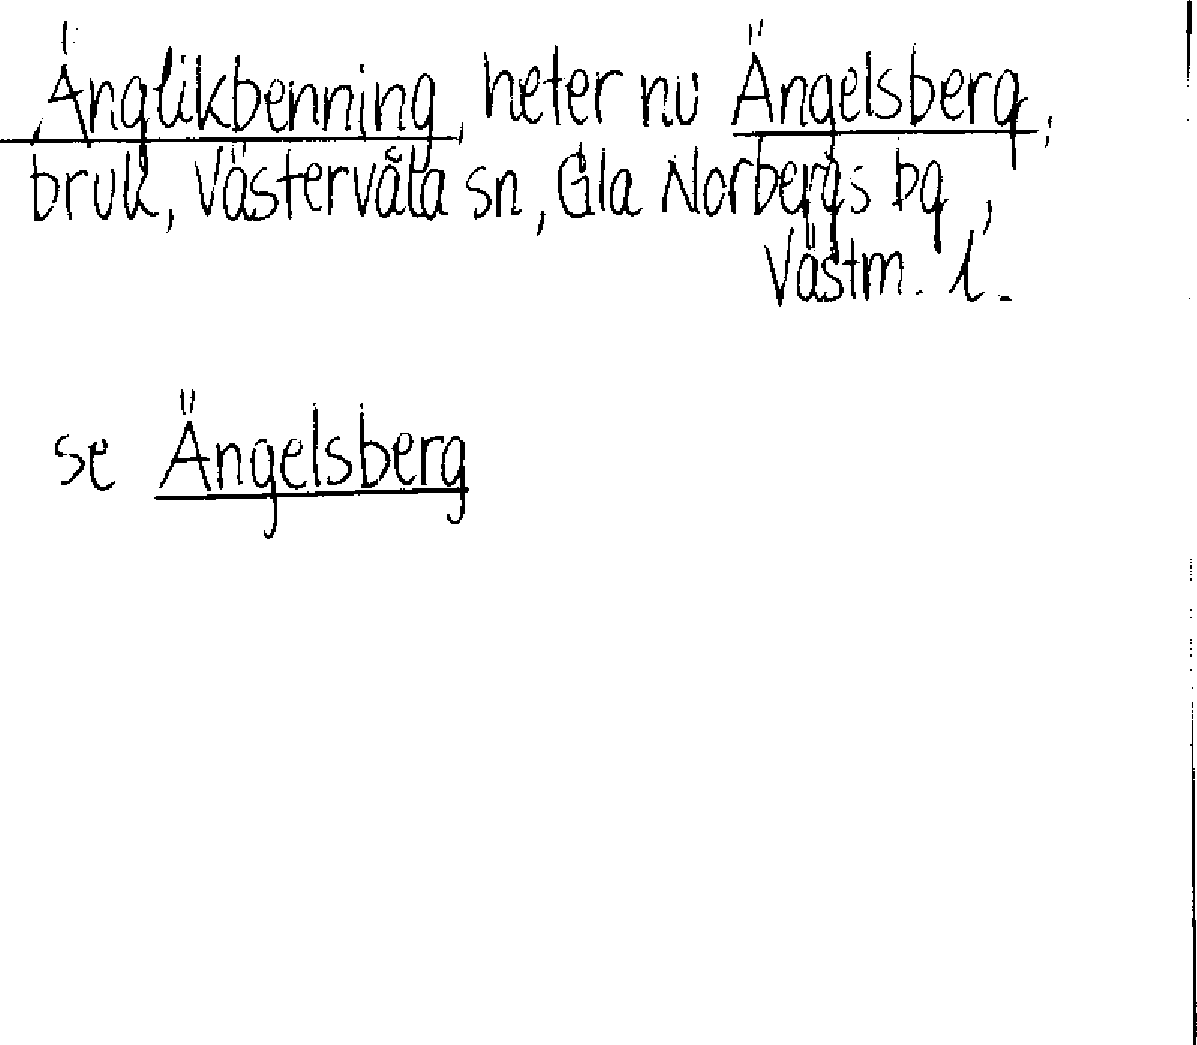 Änglikbenning, heter nu Ängelsberg,
bruk, Västervåla sn, Gla Norbergs bg,
Västm. l.
se Ängelsberg